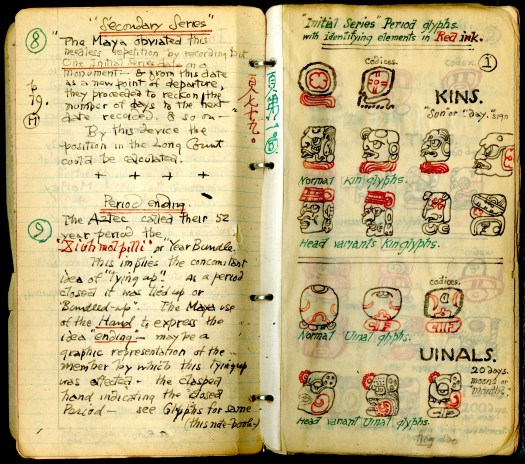 8
"Secondary Series"
"The Maya obviated this
needless repetition by recording but
One Initial Series date on a
monument - & from this date
as a new point of departure,
they proceeded to reckon the
number of days to the next
date recorded. & so on -
By this device the
position in the Long Count
could be calculated.
+ + +
p
79.
9
Period ending.
The Aztec called their 52
year period the
"Xiuhmolpilli" or Year Bundle.
This implies the concomitant
idea of "tying up". as a period
closed it was tied up or
"Bundled-up". The Maya use
of the Hand to express the
idea "ending" - may be a
graphic representation of the
member by which this tying up
was effected - the clasped
hand indicating the closed
Period - see Glyphs for same -
(this note-book-)
"Initial Series" Period glyphs.
with identifying elements in Red ink.
1
codices.
KINS.
"Sun" or "day." sign
Normal Kin glyphs.
Head variants Kin glyphs.
codices.
Normal Uinal glyphs.
UINALS.
20 days.
moons or
months,
Head variant Uinal glyphs.